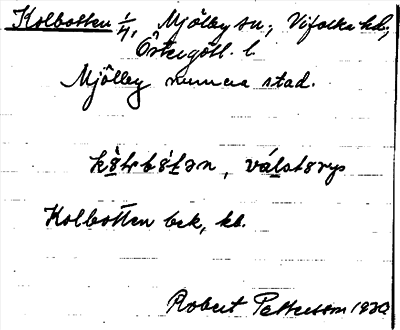 Kolbotten 1/4, Mjölby sn, Vifolka hd,
Östergötl. l
Mjölby numera stad.
Kolbotten bek, kb.
Robert Pettersson 1930